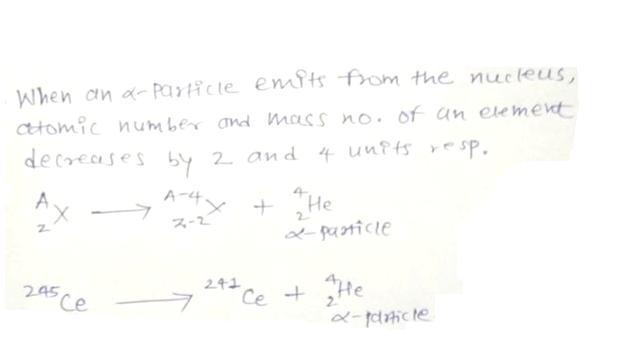 When an α-particle emits from the nucleus,
atomic number and mass no. of an element
decreases by 2 and 4 units resp.
ᴬ₂X ⟶ ᴬ⁻⁴₂₋₂X + ⁴₂He
α-particle
²⁴⁵Ce ⟶ ²⁴¹Ce + ⁴₂He
α-particle